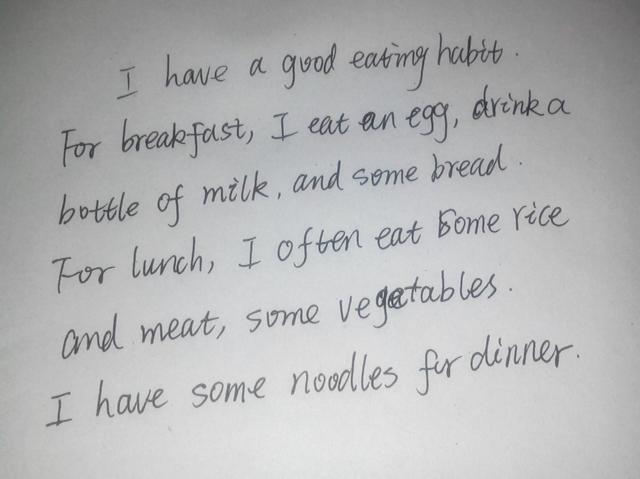 I have a good eating habit.
For breakfast, I eat an egg, drink a
bottle of milk, and some bread.
For lunch, I often eat some rice
and meat, some vegetables.
I have some noodles for dinner.